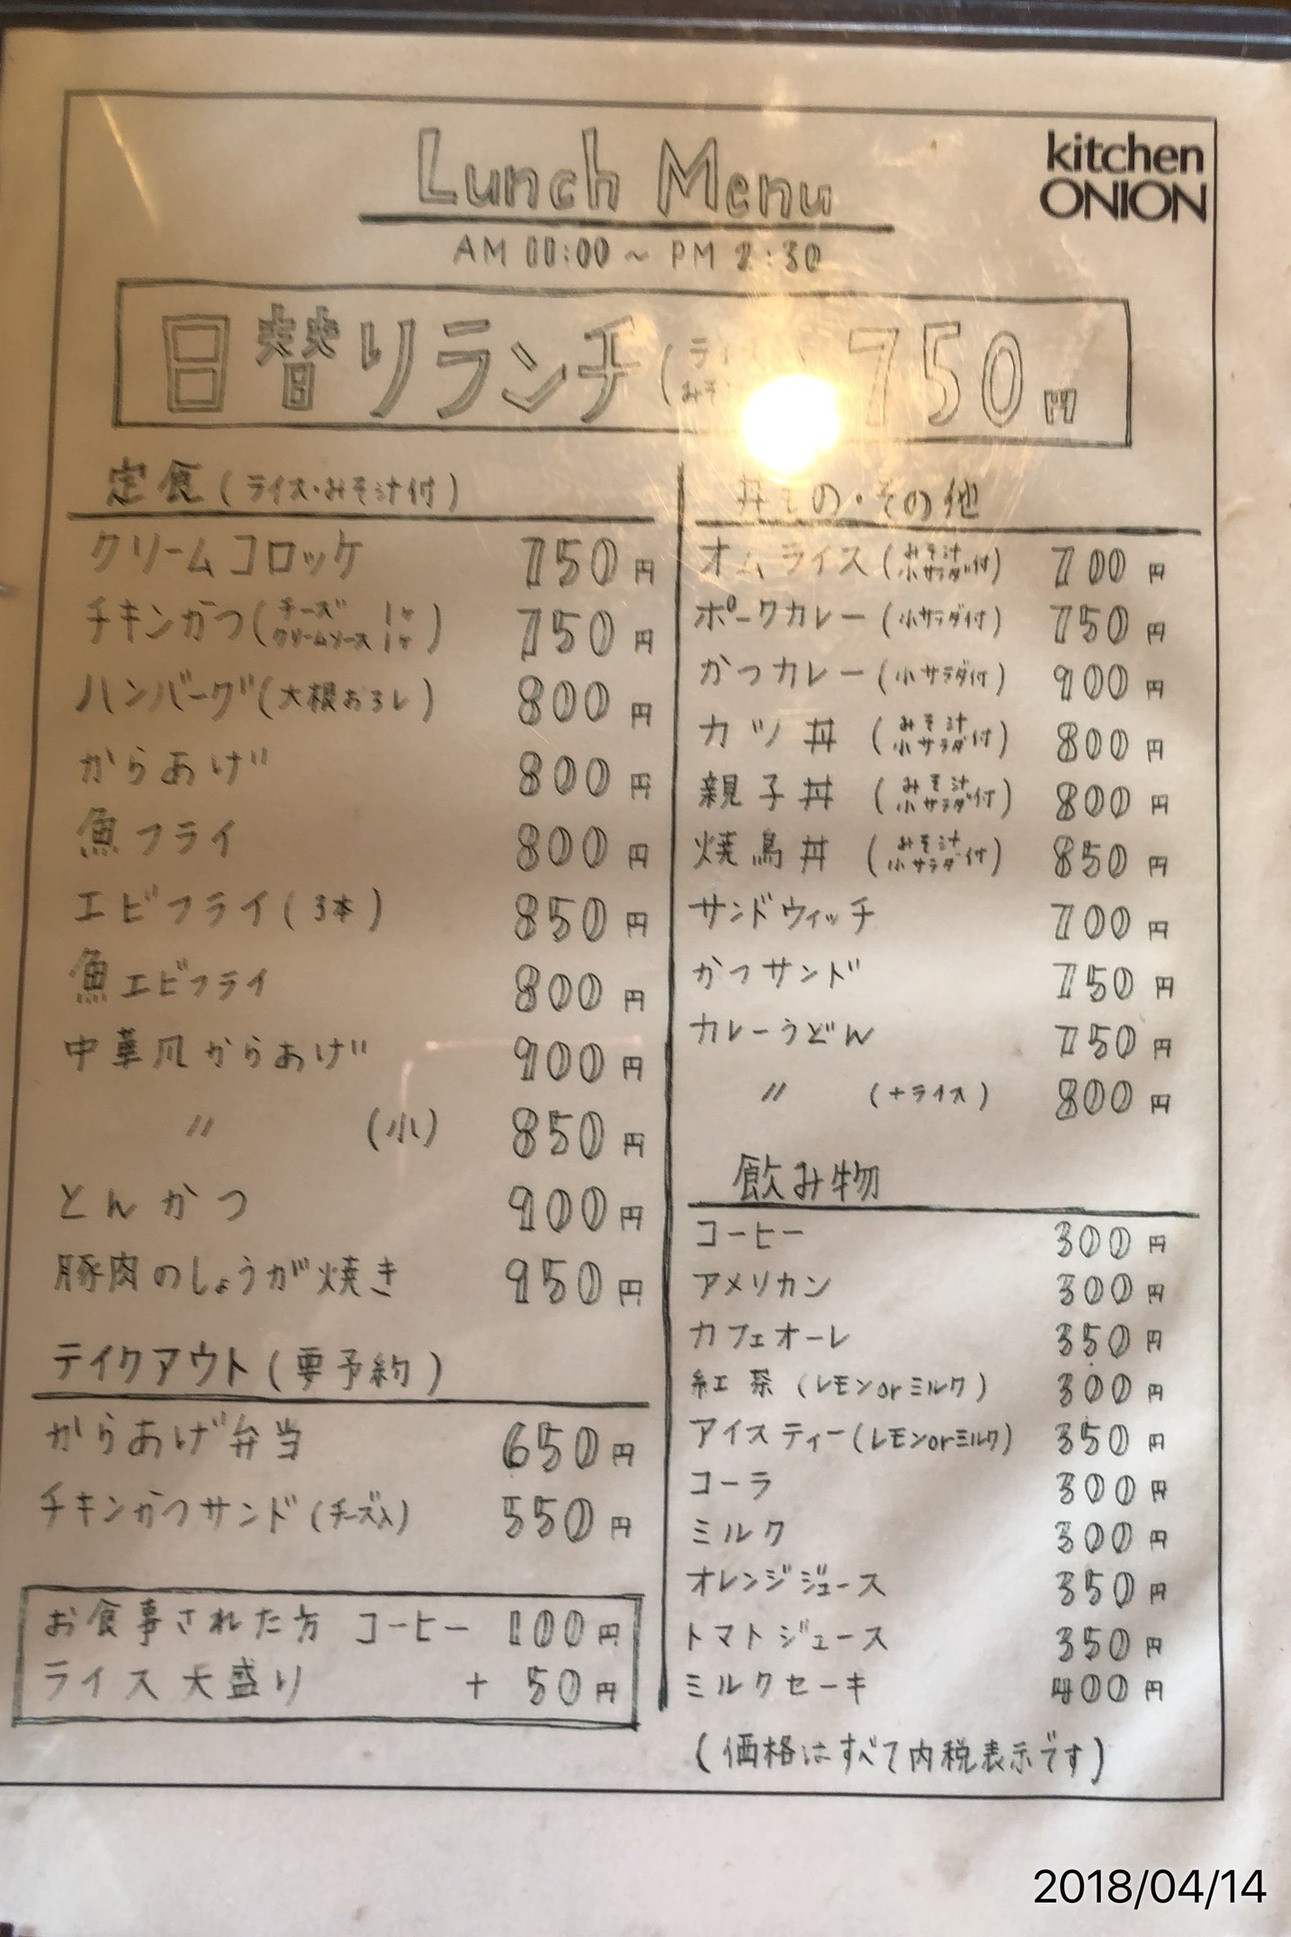 Lunch Menu
kitchen
ONION
AM 11:00 ~ PM 2:30
日替りランチ 750円
定食 (ライス・みそ汁付)
クリームコロッケ 750円
チキンかつ (チーズ 1ヶ クリームソース 1ヶ) 750円
ハンバーグ (大根おろし) 800円
からあげ 800円
魚フライ 800円
エビフライ (3本) 850円
魚エビフライ 800円
中華風からあげ 900円
〃 (小) 850円
とんかつ 900円
豚肉のしょうが焼き 950円
テイクアウト (要予約)
からあげ弁当 650円
チキンかつサンド (チーズ入) 550円
お食事された方 コーヒー 100円
ライス大盛り + 50円
丼もの・その他
オムライス (みそ汁 小サラダ付) 700円
ポークカレー (小サラダ付) 750円
かつカレー (小サラダ付) 900円
カツ丼 (みそ汁 小サラダ付) 800円
親子丼 (みそ汁 小サラダ付) 800円
焼鳥丼 (みそ汁 小サラダ付) 850円
サンドウィッチ 700円
かつサンド 750円
カレーうどん 750円
〃 (+ライス) 800円
飲み物
コーヒー 300円
アメリカン 300円
カフェオーレ 350円
紅茶 (レモンorミルク) 300円
アイスティー (レモンorミルク) 350円
コーラ 300円
ミルク 300円
オレンジジュース 350円
トマトジュース 350円
ミルクセーキ 400円
(価格はすべて内税表示です)
2018/04/14